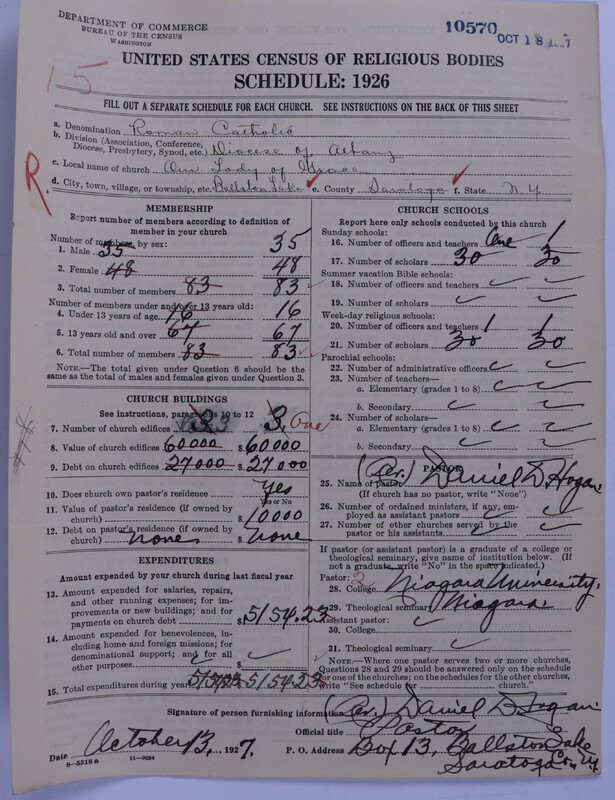 DEPARTMENT OF COMMERCE
BUREAU OF THE CENSUS
WASHINGTON
10570
OCT 18
UNITED STATES CENSUS OF RELIGIOUS BODIES
SCHEDULE: 1926
15
FILL OUT A SEPARATE SCHEDULE FOR EACH CHURCH. SEE INSTRUCTIONS ON THE BACK OF THIS SHEET
a. Denomination Roman Catholic
b. Division (Association, Conference,
Diocese, Presbytery, Synod, etc.) Diocese of Albany
c. Local name of church Our Lady of Grace
R.
d. City, town, village, or township, etc. Ballston Lake e. County Saratoga f. State N. Y
MEMBERSHIP
Report number of members according to definition of
member in your church
Number of members, by sex:
1. Male 35 35
2. Female 48 48
3. Total number of members 83 83
Number of members under and over 13 years old:
4. Under 13 years of age 16 16
5. 13 years old and over 67 67
6. Total number of members 83 83
NOTE.—The total given under Question 6 should be
the same as the total of males and females given under Question 3.
CHURCH BUILDINGS
See instructions, paragraphs 10 to 12
7. Number of church edifices 3 3. One
8. Value of church edifices 60000 $60000
9. Debt on church edifices 27000 $27000
10. Does church own pastor's residence Yes
Yes or No
11. Value of pastor's residence (if owned by
church) $10000
12. Debt on pastor's residence (if owned by
church) none $none
EXPENDITURES
Amount expended by your church during last fiscal year
13. Amount expended for salaries, repairs,
and other running expenses; for im-
provements or new buildings; and for
payments on church debt $5154.23
14. Amount expended for benevolences, in-
cluding home and foreign missions; for
denominational support; and for all
other purposes $
15. Total expenditures during year 5154.23
CHURCH SCHOOLS
Report here only schools conducted by this church
Sunday schools:
16. Number of officers and teachers One 1
17. Number of scholars 30 30
Summer vacation Bible schools:
18. Number of officers and teachers
19. Number of scholars
Week-day religious schools:
20. Number of officers and teachers 1 1
21. Number of scholars 30 30
Parochial schools:
22. Number of administrative officers
23. Number of teachers—
a. Elementary (grades 1 to 8)
b. Secondary
24. Number of scholars—
a. Elementary (grades 1 to 8)
b. Secondary
PASTOR
25. Name of pastor (Rev.) Daniel D. Hogan
(If church has no pastor, write "None")
26. Number of ordained ministers, if any, em-
ployed as assistant pastors
27. Number of other churches served by the
pastor or his assistants
If pastor (or assistant pastor) is a graduate of a college or
theological seminary, give name of institution below. (If
not a graduate, write "No" in the space indicated.)
Pastor: 2
28. College Niagara University,
29. Theological seminary Niagara.
Assistant pastor:
30. College
31. Theological seminary
NOTE.—Where one pastor serves two or more churches,
Questions 28 and 29 should be answered only on the schedule
for one of the churches; on the schedules for the other churches,
write "See schedule for church."
Signature of person furnishing information (Rev.) Daniel D. Hogan
Official title Pastor
Date October 13, 1927. P. O. Address Box 13, Ballston Lake
Saratoga Co. N.Y.
8-5518 a 11-9064